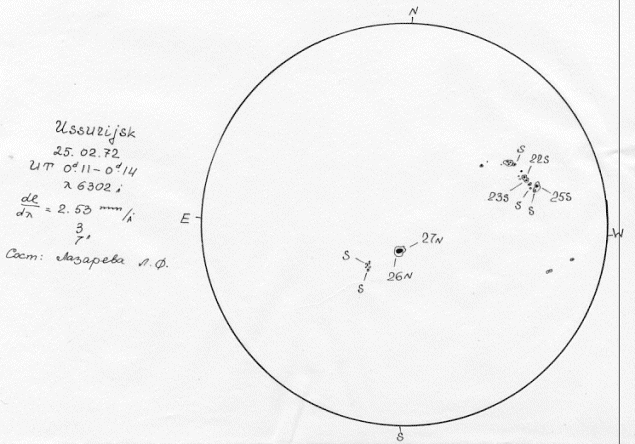 N
Ussurijsk
25.02.72
UT 0ᵈ11 – 0ᵈ14
λ 6302 Å
dl/dλ = 2.53 mm/Å
3
7"
Сост: Лазарева Л.Ф.
E
W
S
S
22S
23S
S
S
25S
27N
26N
S
S